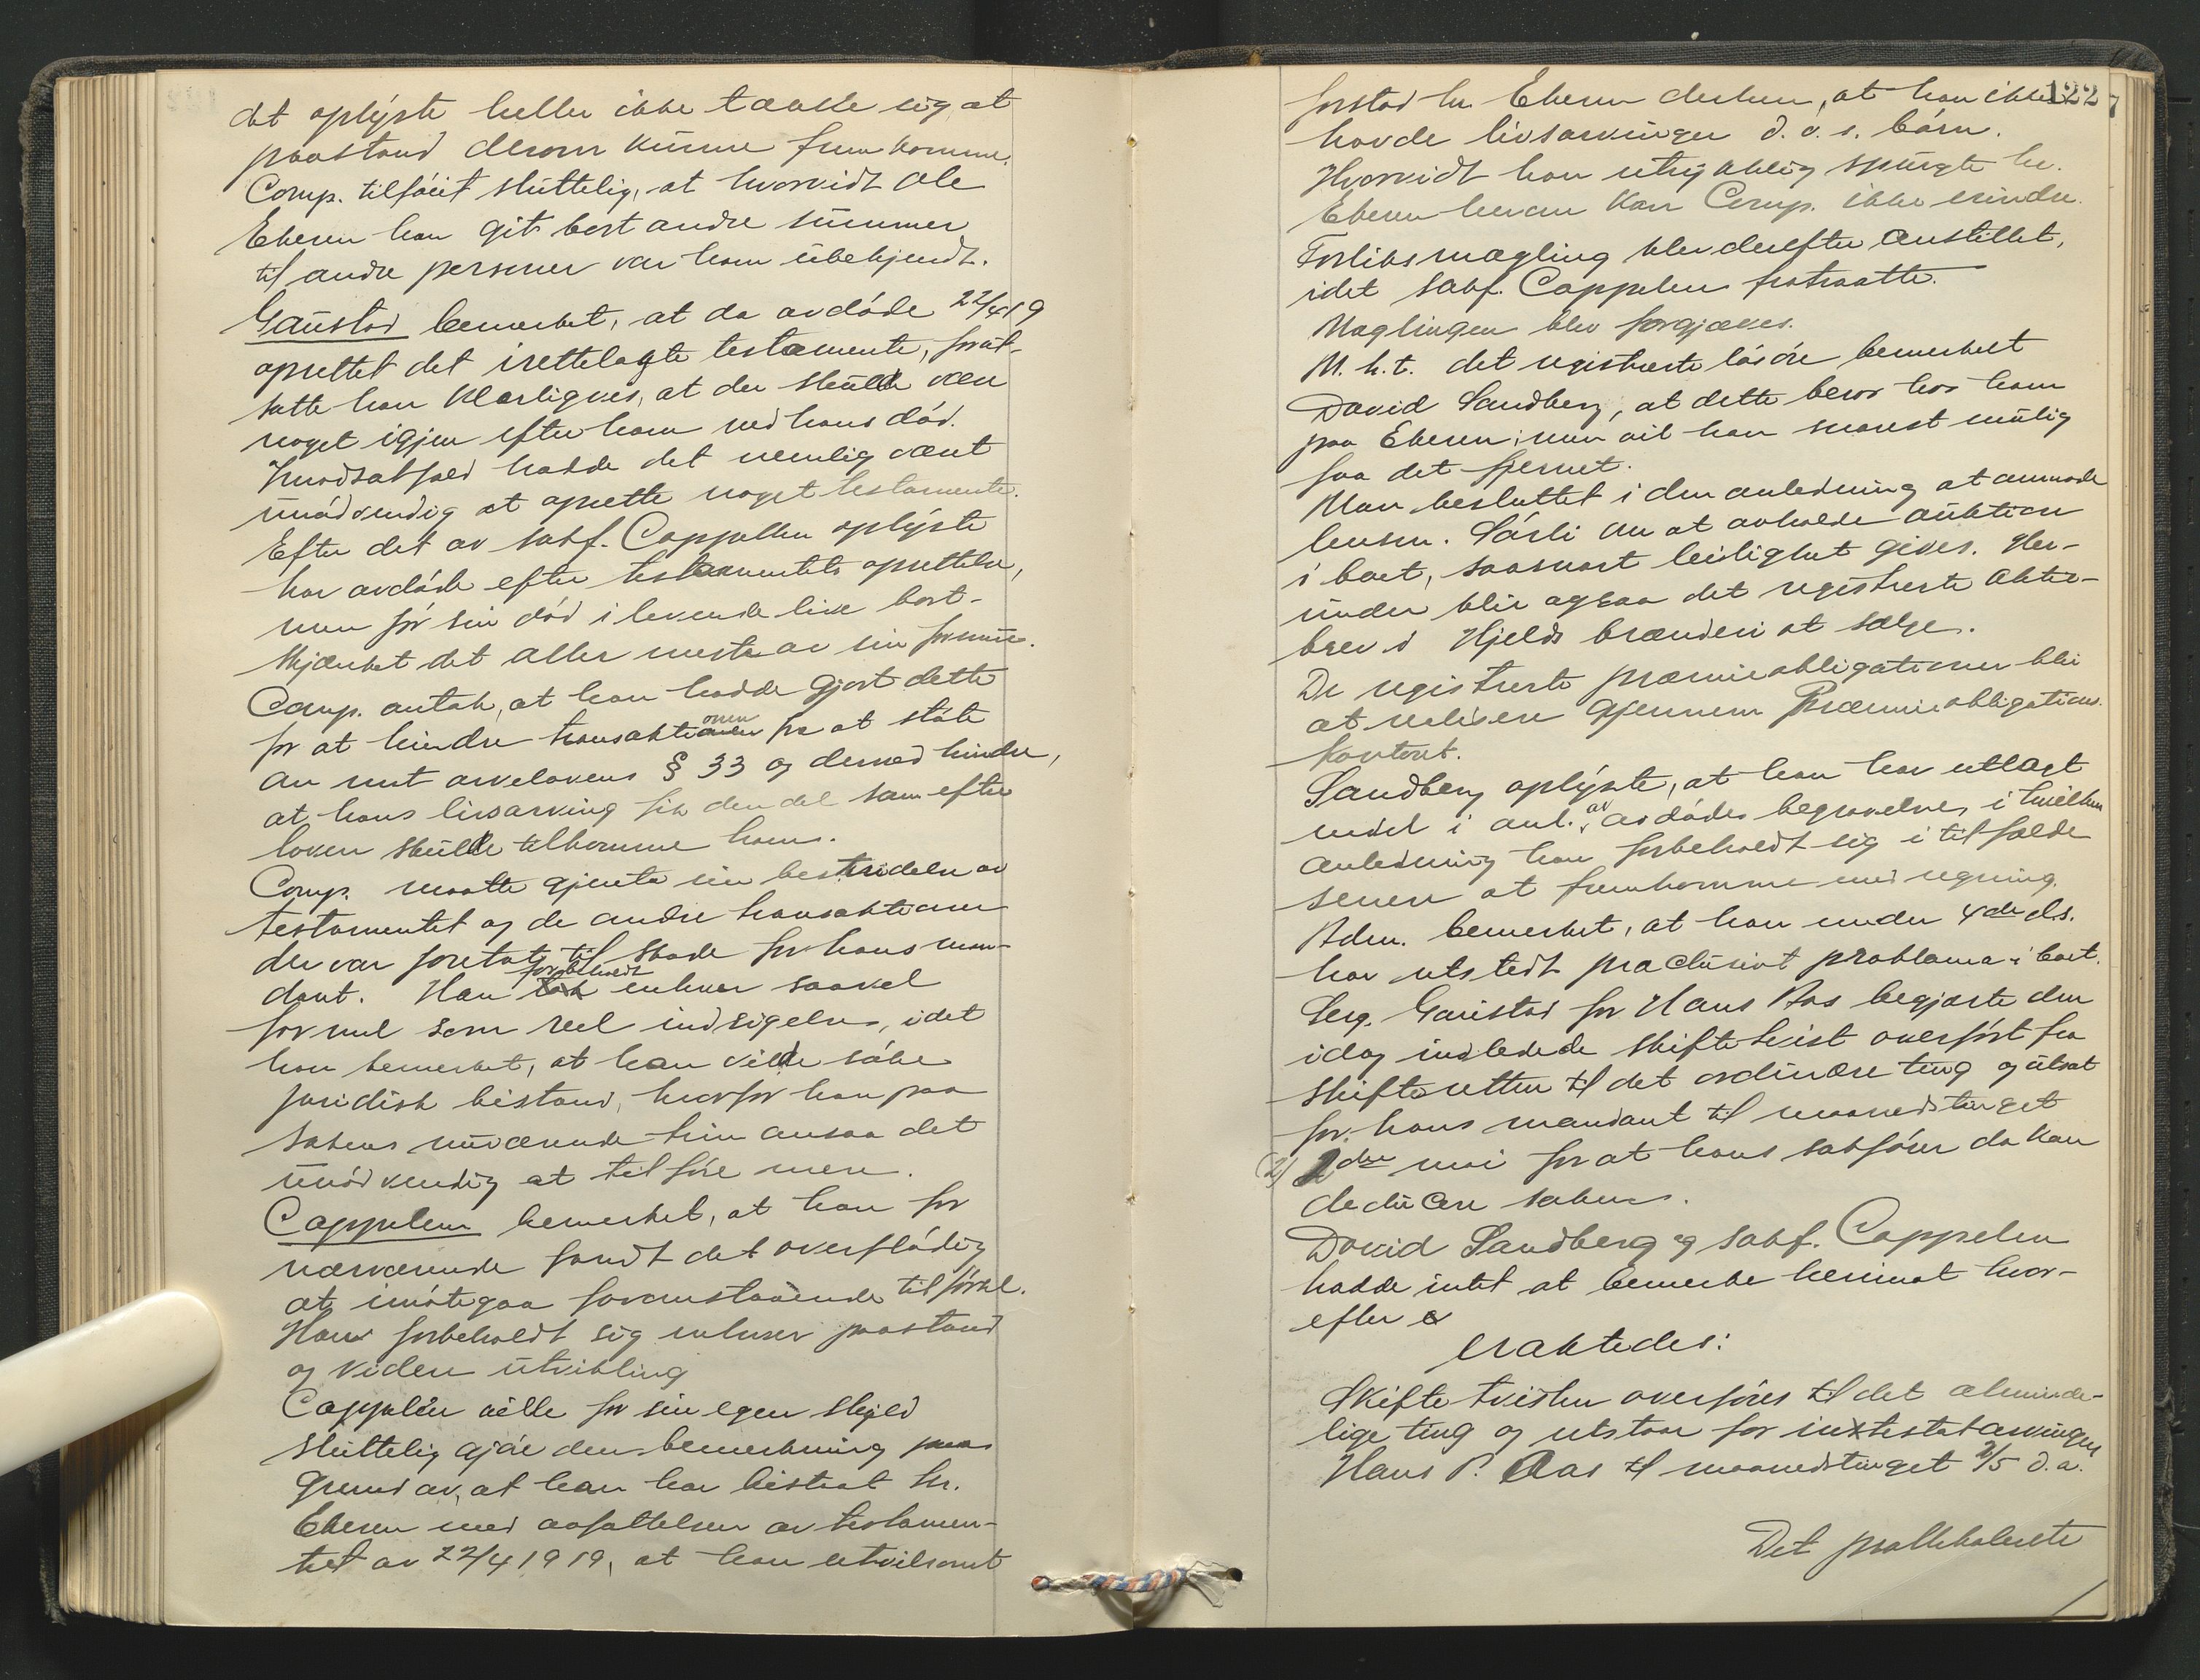 det oplyste heller ikke tænke sig at
paastand derom kunne fremkomme.
Comp. tilføiet sluttelig, at hvorvidt Ole
Ekeren han git bort andre summer
til andre personer var ham ubekjendt.
Gaustad bemerket, at da avdøde 22/4 19
oprettet det irettelagte testamente, forut-
satte han klarligvis, at der skulde være
noget igjen efter ham ved hans død.
Imodsatfald hadde det nemlig været
unødvendig at oprette noget testamente.
Efter det av sakf. Cappellen oplyste
har avdøde efter testamentets oprettelse,
men før sin død i levende live bort-
skjænket det aller meste av sin formue.
Comp. antok, at han hadde gjort dette
for at hindre transaktionen onen fra at støte
an mot arvelovens § 33 og derved hindre,
at hans livsarving fik den del som efter
loven skulde tilkomme ham.
Comp. maatte gjenta sin bestridelse av
testamentet og de andre transaktioner
der var foretat til skade for hans man-
dant. Han forbeholdt enhver saavel
formel som reel indsigelse, idet
han bemerket, at han vilde søke
juridisk bistand, hvorfor han paa
sakens nuværende trin ansaa det
unødvendig at tilføre mere.
Cappelen bemerket, at han for
nærværende fandt det overflødig
at imøtegaa foranstaaende tilførsel.
Han forbeholdt sig enhver paastand
og videre utvikling
Cappelen vilde for sin egen skyld
sluttelig gjøre den bemerkning paa
grund av, at han har bistaat hr.
Ekeren med avfattelsen av testamen-
tet av 22/4 1919, at han utvilsomt
122
forstod hr. Ekeren derhen, at han ikke
havde livsarvinger d. v. s. børn.
Hvorvidt han utrykkelig spurgte hr.
Ekeren herom kan Comp. ikke erindre.
Forliksmægling blev derefter anstillet,
idet sakf. Cappelen fratraatte.
Mæglingen blev forgjæves.
M. h. t. det registrerte løsøre bemerket
David Sandberg, at dette beror hos ham
paa Ekeren; men vil han snarest mulig
faa det fjernet.
Man besluttet i den anledning at anmode
lensm. Sørli om at avholde auktion
i boet, saasnart leilighet gives. Her-
under blir ogsaa det registrerte aktie-
brev i Hjelds brænderi at sælge.
De registrerte præmieobligationer bli
at realisere gjennem Præmieobligations-
kontoret.
Sandberg oplyste, at han har utlagt
endel i anl. av avdødes begravelse, i hvilken
anledning han forbeholdt sig i tilfælde
senere at fremkomme med regning.
Adm. bemerket, at han under 4de ds.
har utstedt præclusivt proklama i boet.
Serg. Gaustad for Hans Aas begjærte den
idag indledede skiftetvist overført fra
skifteretten til det ordinære ting og utsat
for hans mandant til maanedstinget
(2) 2den mai for at hans sakfører da kan
deducere saken.
David Sandberg og sakf. Cappelen
hadde intet at bemerke herimot hvor-
efter
eraktedes:
Skiftetvisten overføres til det alminde-
lige ting og utstaar for intestatarvingen
Hans P. Aas til maanedstinget 2/5 d.a.
Det protkolerte